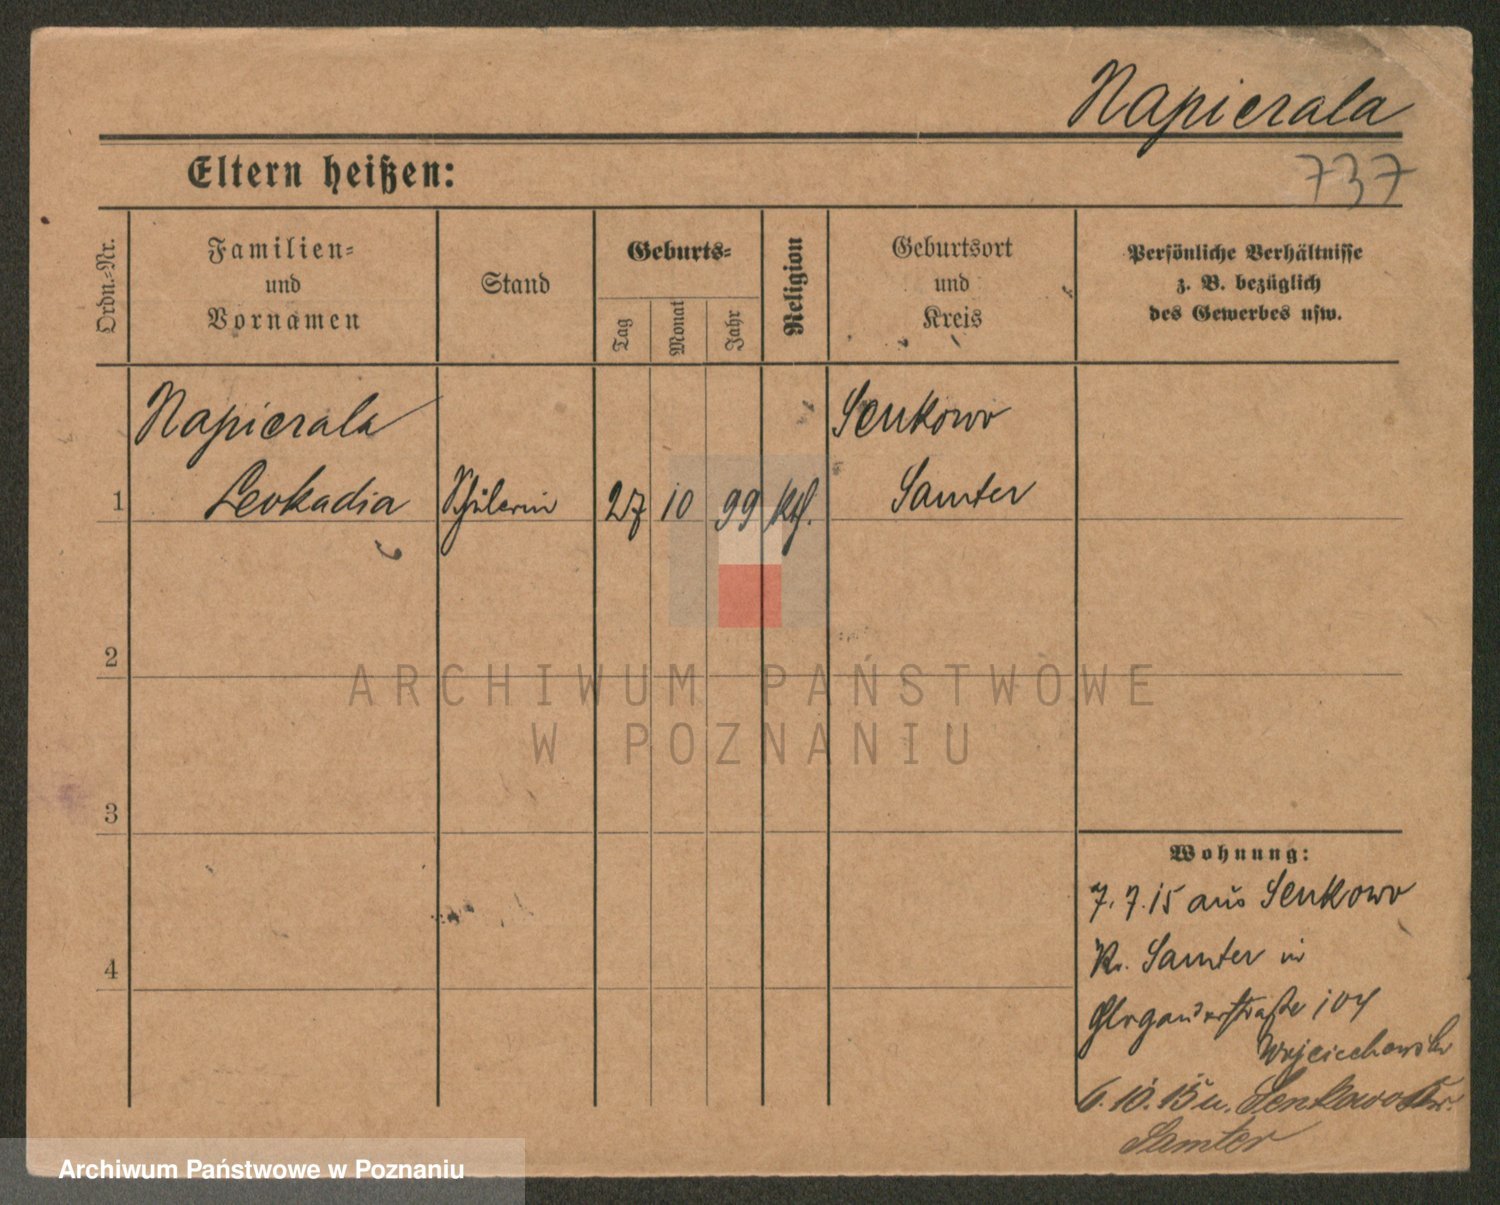 Napierala
Eltern heißen:
737
Ordn.=Nr.
Familien=
und
Vornamen
Stand
Geburts=
Tag
Monat
Jahr
Religion
Geburtsort
und
Kreis
Persönliche Verhältnisse
z. B. bezüglich
des Gewerbes usw.
Napierala
Senkowo
1 Leokadia Schülerin 27 10 99 kth. Samter
2
3
4
ARCHIWUM PAŃSTWOWE
W POZNANIU
Wohnung:
7. 7. 15 aus Senkowo
Kr. Samter in
Glogauerstraße 104
Wojciechowski
6. 10. 15 n. Senkowo Kr.
Samter
Archiwum Państwowe w Poznaniu